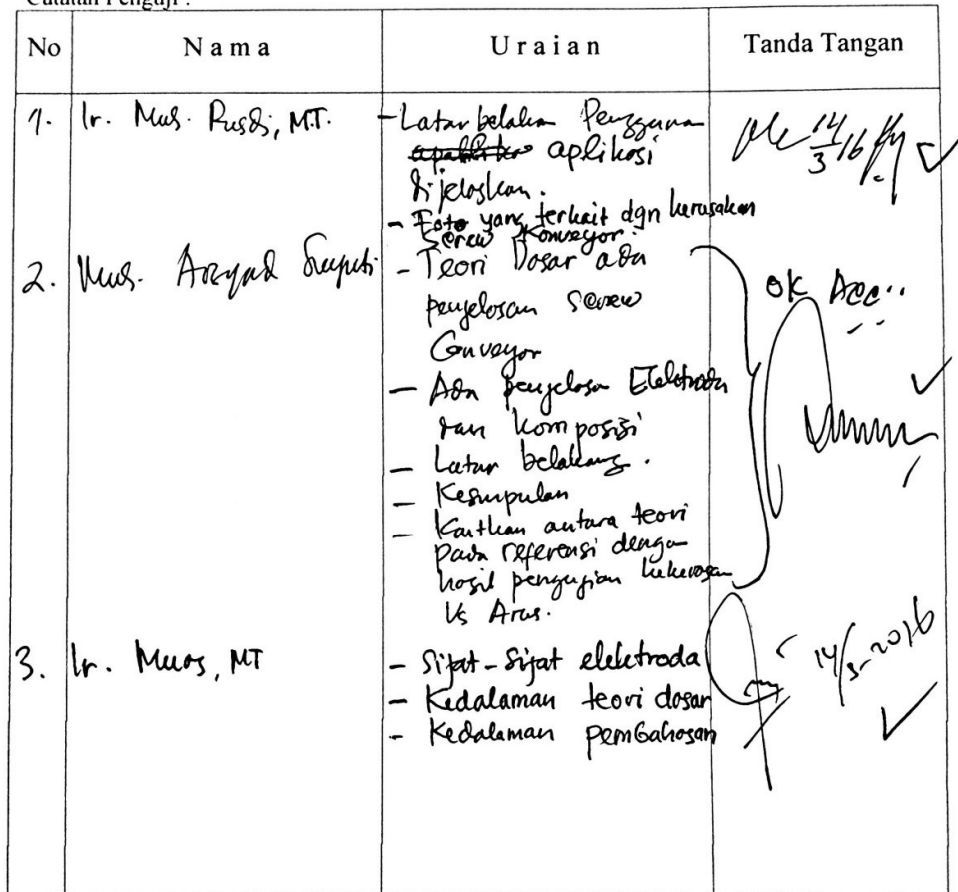 Catatan Penguji :
No
N a m a
U r a i a n
Tanda Tangan
1.
Ir. Muh. Rusdi, MT.
- Latar belakan Pengguna
aplikasi
dijelaskan.
- Foto yang terkait dgn kerusakan
Screw Konveyor.
ok 14/3 16
2.
Muh. Arsyad Suyuti
- Teori Dasar ada
penjelasan Screw
Conveyor
- Ada penjelasan Elektroda
dan komposisi
- Latar belakang.
- Kesimpulan
- Kaitkan antara teori
pada referensi dengan
hasil pengujian kekerasan
Vs Arus.
ok Acc..
3.
Ir. Muas, MT
- Sifat-Sifat elektroda
- Kedalaman teori dasar
- Kedalaman pembahasan
14/3-2016